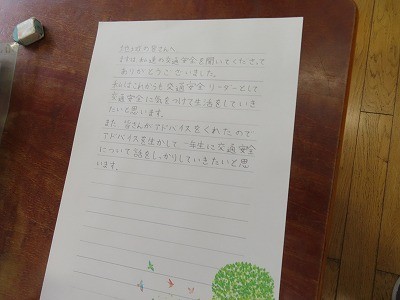 の皆さんへ
まずは私達の交通安全を聞いてくださって
ありがとうございました。
私はこれからも交通安全リーダーとして
交通安全に気をつけて生活をしていき
たいと思います。
また皆さんがアドバイスをくれたので
アドバイスを生かして一年生に交通安全
について話をしっかりしていきたいと思
います。